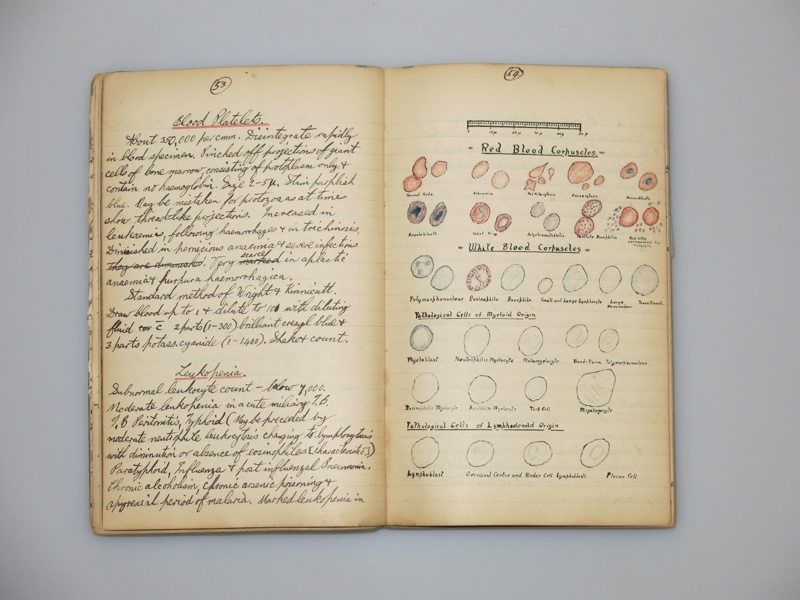 53
Blood Platelets.
About 350,000 per cmm. Disintegrate rapidly
in blood specimen. Pinched off projections of giant
cells of bone marrow, consisting of protoplasm only, &
contain no haemoglobin. Size 2-5µ. Stain purplish
blue. May be mistaken for protozoa as at time
show thread-like projections. Increased in
leukaemia, following haemorrhages & in trichinosis.
Diminished in pernicious anaemia & severe infections
they are diminished. Very scarce marked in aplastic
anaemia & purpura haemorrhagica.
Standard method of Wright & Kinnicutt.
Draw blood up to 1 & dilute to 101 with diluting
fluid 2 parts (1-300) brilliant cresyl blue &
3 parts potass. cyanide (1-1400). Shake & count.
Leukopenia.
Subnormal leukocyte count - below 7,000.
Moderate leukopenia in acute miliary T.B.
T.B. Peritonitis, Typhoid (May be preceded by
moderate neutrophile leukocytosis changing to lymphocytosis
with diminution or absence of eosinophiles [characteristic])
Paratyphoid, Influenza & post influenzal Pneumonia.
Chronic alcoholism, chronic arsenic poisoning &
apyrexial period of malaria. Marked leukopenia in
Red Blood Corpuscles.
Normal Reds.
Poikilocytosis
Normoblasts
Megaloblasts
Polychromatophilia
White Blood Corpuscles
Polymorphonuclear Eosinophile Basophile Small and Large Lymphocyte Large Mononuclear Transitional
Pathological Cells of Myeloid Origin
Myeloblast Neutrophilic Myelocyte Metamyelocyte Band-Form Polymorphonuclear
Eosinophilic Myelocyte Basophilic Myelocyte Turck Cell Megalocyte
Pathological Cells of Lymphadenoid Origin
Lymphoblast Germinal Centre and Rieder Cell Lymphoblasts Plasma Cell